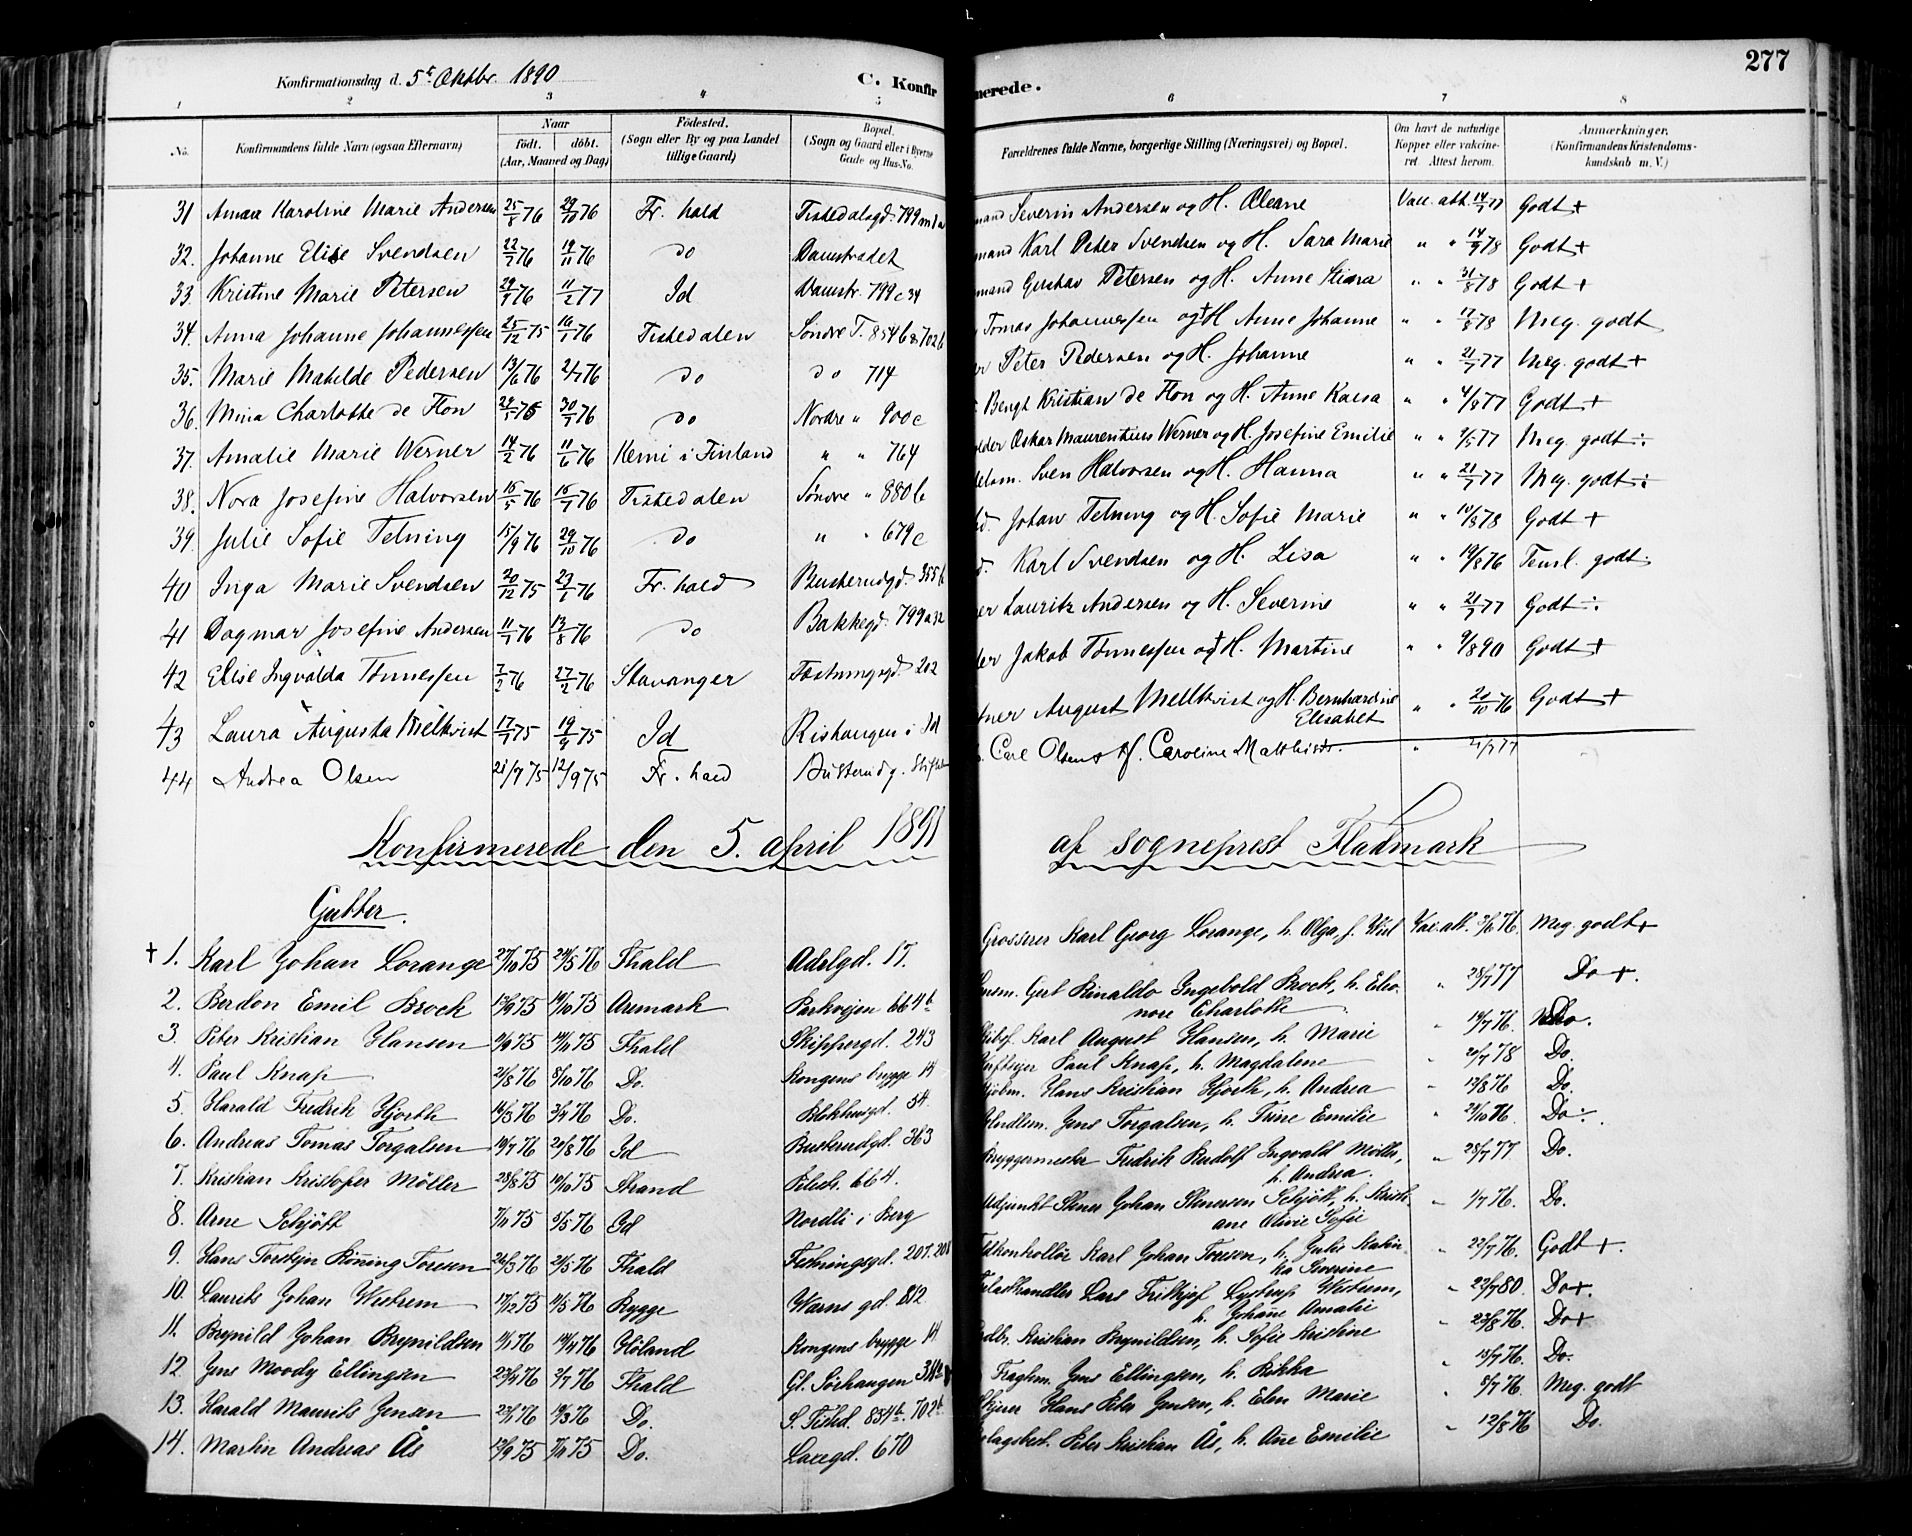 277
Konfirmationsdag d. 5t Oktbr. 1890
C. Konfir
merede.
1 2 3 4 5 6 7 8
No. Konfirmandens fulde Navn (ogsaa Efternavn) Naar födt. döbt. (Aar, Maaned og Dag) Födested. (Sogn eller By og paa Landet tillige Gaard) Bopæl. (Sogn og Gaard eller i Byerne Gade og Hus-No. Forældrenes fulde Navne, borgerlige Stilling (Næringsvei) og Bopæl. Om havt de naturlige Kopper eller vakcineret Attest herom. Anmærkninger. (Konfirmandens Kristendomskundskab m. V.)
31 Karoline Marie Andersen 25/8 76 29/10 76 Fr.hald Tistedalsgd. 799 mand Severin Andersen og H. Oleane Vacc. att. 14/7 77 Godt +
32. Johanne Elise Svendsen 22/7 76 19/11 76 Do Damstrædet mand Karl Peter Svendsen og H. Sara Marie " " 14/9 78 Godt +
33. Kristine Marie Petersen 29/9 76 11/2 77 Id Damstr. 799 c 34 mand Gustav Petersen og H. Anne " " 31/8 78 Godt +
34. Anna Johanne Johannessen 25/12 75 16/1 76 Tistedalen Söndre T. 854 b & 702 b Tomas Johannessen og † H Anne Johanne " " 17/8 78 Meg. godt
35. Marie Matilde Pedersen 13/6 76 2/7 76 Do Do 714 er Peter Pedersen og H. Johanne " " 21/7 77 Meg. godt +
36. Mina Charlotte de Flon 30/7 76 Do Nordre " 900 c Bengt Kristian de Flon og H. Anne Kaisa " " 4/8 77 Godt +
37. Amalie Marie Werner 14/2 76 11/6 76 Kemi i Finland " " 764 older Oskar Maurentius Werner og H. Josefine Emilie " " 2/5 77 Meg. godt ÷
38. Nora Josefine Halvorsen 15/5 76 16/7 76 Tistedalen Söndre " 880 b Sven Halvorsen og H. Hanna " " 21/7 77 Meg. godt ÷
39. Julie Sofie Tetning 15/9 76 29/10 76 Do " " 679 c d. Johan Tetning og H. Sofie Marie " " 10/8 78 Godt +
40 Inga Marie Svendsen 20/12 75 23/1 76 Fr.hald Buskerudgd. 355 b d. Karl Svendsen og H. Lisa " " 19/8 76 Teml. godt
41 Dagmar Josefine Andersen 11/7 76 13/8 76 Do Bakkegd. 799 a 32 er Lauritz Andersen og H. Severine " " 21/7 77 Godt ÷
42 Elise Ingvalda Tönnessen 7/2 76 27/2 76 Stavanger Fæstningsgd. 202 der Jakob Tönnessen og † H. Martine " " 9/8 90 Godt +
43 Laura Augusta Mellkvist 17/7 75 19/9 75 Id Rishaugen i Id tner August Mellkvist og H. Bernhardine Elisabet " " 20/10 76 Godt +
44 Andrea Olsen 21/7 75 12/9 75 Fr.hald Busterudg. Carl Olsen & H. Caroline "
Konfirmerede den 5. april 1891 af sogneprest Fladmark
Gutter.
† 1. Karl Johan Lorange 27/10 75 24/5 76 Fhald Adelgd. 17. Grosserer Karl Georg Lorange, h. Olga, f. Wiel Vac. att. 3/6 76. Meg. godt +
2. Berdon Emil Brock 13/9 75 19/10 75 Aremark Parkvejen 664 b Gert Rinaldo Ingebold Brock, h. Eleonore Charlotte " 28/7 77 Do +.
3. Peter Kristian Hansen 9/9 75 14/11 75 Fhald Skippergd. 243 Karl August Hansen, h. Marie " 19/7 76. Do.
4. Paul Knap 21/8 76 8/10 76 Do. Kongens brygge 14 Paul Knap, h. Magdalene " 20/7 78 Do.
5. Harald Fredrik Hjorth 16/3 76 3/4 76 Do. Blokhusgd. 54. Hans Kristian Hjorth, h. Andrea " 13/8 76 Do.
6. Andreas Tomas Torgalsen 19/7 76 20/8 76 Id Buskerudgd. 363 Jens Torgalsen, h. Trine Emilie " 28/10 76. Do ÷.
7. Kristian Kristofer Möller 28/8 75 10/10 75 Strand 664. Bryggermester Fredrik Rudolf Ingvald Möller, h. Andrea. " 28/7 77 Do.
8. Arne Schjött 7/11 75 5/5 76 Id Nordli i Berg Adjunkt Stener Johan Stenersen Schjött, h. Kristiane Olivie Sofie " 1/7 76. Do.
9. Hans Torstejn Rönning Toresen 26/3 76 21/5 76 Fhald Festningsgd. 207. 208 kontrollör Karl Johan Toresen, h. Julie Katinka Severine " 22/7 76. Godt +.
10. Laurits Johan Westrem 17/12 75 11/5 76 Rygge Warnsgd. 812 handler Lars Frithjof Lystrup Westrem, h. Johanne Amalie " 22/7 80. Do +.
11. Brynild Johan Brynildsen 11/1 76 14/4 76 Höland Kongens brygge 14 Kristian Brynildsen, h. Sofie Kristine " 23/8 76. Do +
12 Jens Moody Ellingsen 23/4 76 2/7 76 Fhald Gl. Sörhaugen Fraghm. Jens Ellingsen, h. Rikka " 15/7 76. Do.
13. Harald Maurits Jensen 23/1 76 19/3 76 Do. S. Tisted. 854 b. 702 b. Hans Peter Jensen, h. Elen Marie " 8/7 76. Meg. godt
14. Martin Andreas Ås 12/9 75 7/11 75 Do. Laxegd. 670 Peter Kristian Ås, h. Ane Emilie " 12/8 76 Do.